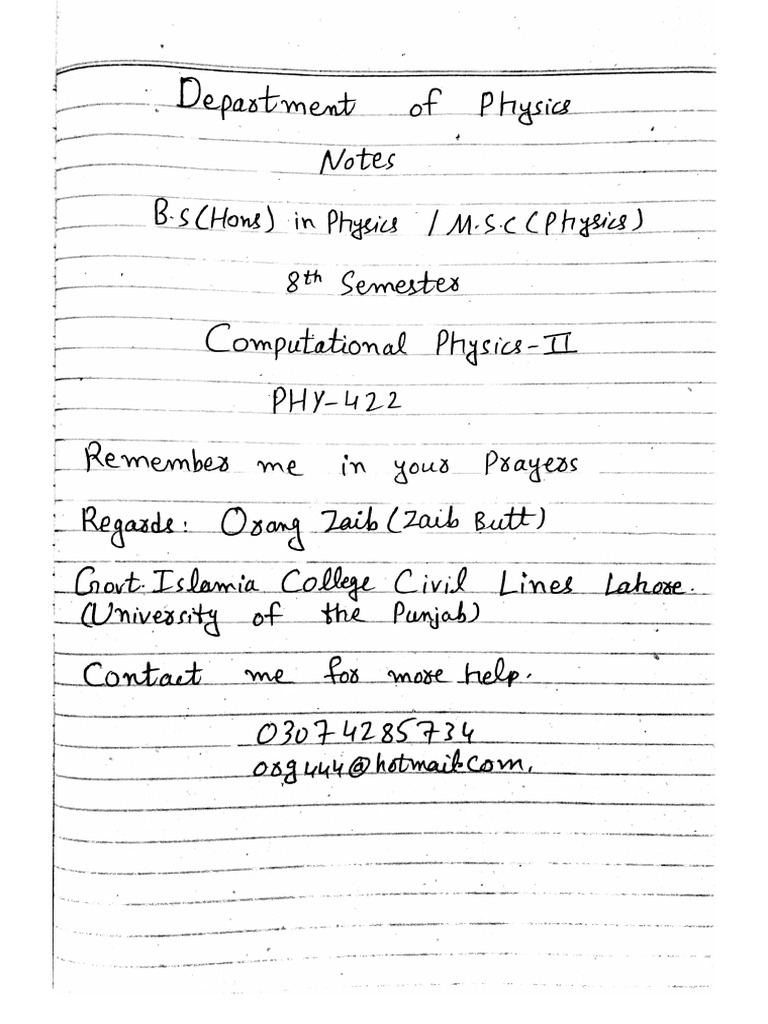 Department of Physics
Notes
B.S(Hons) in Physics / M.S.C (Physics)
8th Semester
Computational Physics-II
PHY-422
Remember me in your Prayers
Regards: Orang Zaib (Zaib Butt)
Govt. Islamia College Civil Lines Lahore.
(University of the Punjab)
Contact me for more help.
03074285734
org444@hotmail.com.